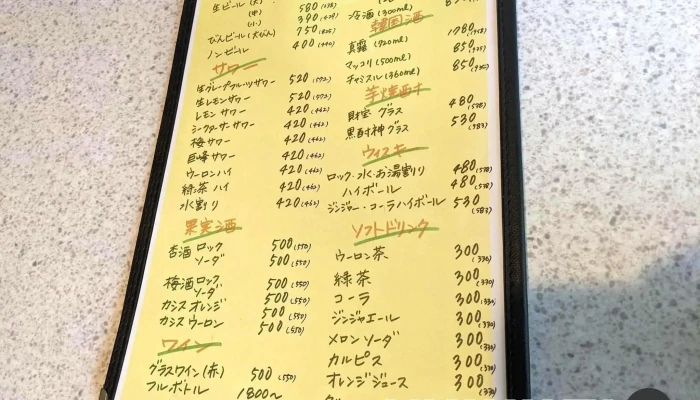 生ビール(大) 580(638)
(中) 390(429)
(小)
びんビール(大びん) 750(825)
ノンビール 400(440)
サワー
生グレープフルーツサワー 520(572)
生レモンサワー 520(572)
レモンサワー 420(462)
シークヮーサーサワー 420(462)
梅サワー 420(462)
巨峰サワー 420(462)
ウーロンハイ 420(462)
緑茶ハイ 420(462)
水割り 420(462)
果実酒
杏酒 ロック 500(550)
ソーダ 500(550)
梅酒 ロック 500(550)
ソーダ 500(550)
カシスオレンジ 500(550)
カシスウーロン 500(550)
ワイン
グラスワイン(赤) 500(550)
フルボトル 1800〜
冷酒(300ml)
韓国酒
真露(720ml) 1780
マッコリ(500ml) 850(935)
チャミスル(360ml) 850(935)
芋焼酎
財宝 グラス 480(528)
黒酎神グラス 530(583)
ウィスキー
ロック・水・お湯割り 480(528)
ハイボール 480(528)
ジンジャー・コーラハイボール 530(583)
ソフトドリンク
ウーロン茶 300(330)
緑茶 300(330)
コーラ 300(330)
ジンジャエール 300(330)
メロンソーダ 300(330)
カルピス 300(330)
オレンジジュース 300(330)